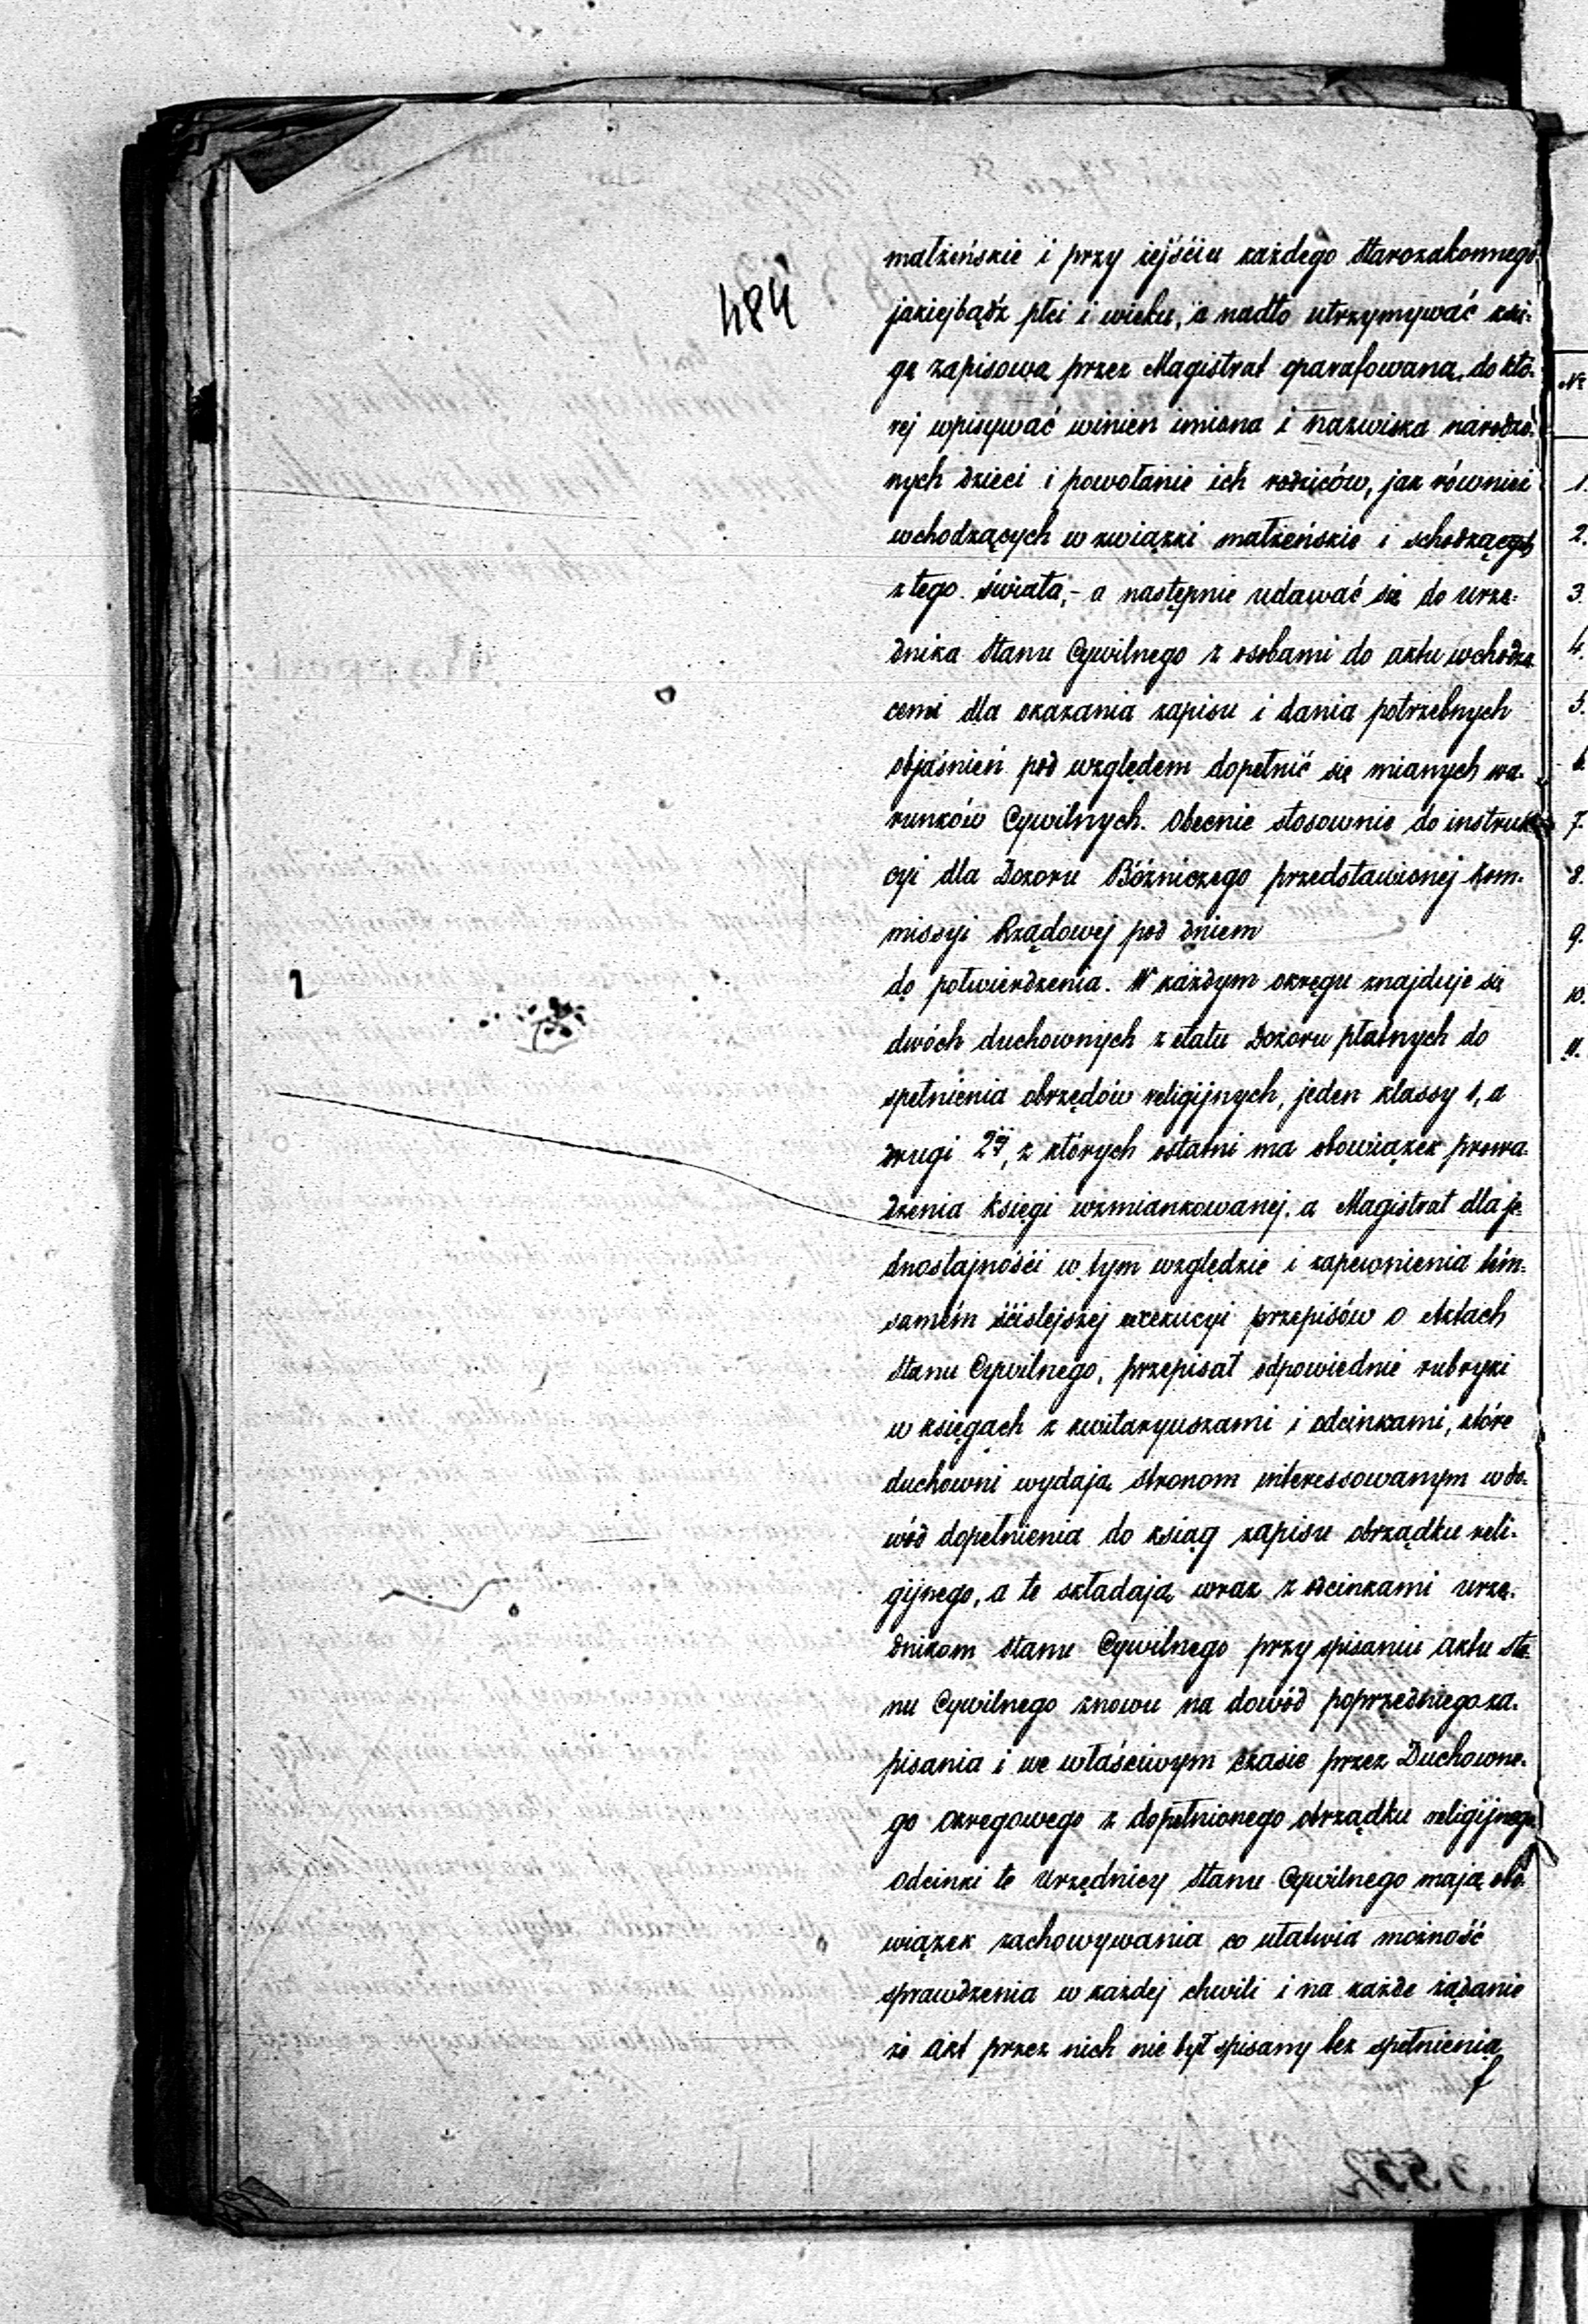 484
małżeńskie i przy zejściu każdego Starozakonnego
jakiejbądź płci i wieku, a nadto utrzymywać xsi-
gę zapisową przez Magistrat oparafowaną, do któ-
rej wpisywać winien imiona i nazwiska narodzo-
nych dzieci i powołanie ich rodziców, jak również
wchodzących w związki małżeńskie i schodzących
z tego świata, – a następnie udawać się do urzę-
dnika Stanu Cywilnego z osobami do aktu wchodzą
cemi dla okazania zapisu i dania potrzebnych
objaśnień pod względem dopełnić się mianych wa-
runków Cywilnych. Obecnie stosownie do instruk
cyi dla Dozoru Bóżniczego przedstawionej Kom-
missyi Rządowej pod dniem
do potwierdzenia. W każdym okręgu znajduje się
dwóch duchownych z etatu Dozoru płatnych do
spełnienia obrzędów religijnych, jeden klassy 1, a
drugi 2éj, z których ostatni ma obowiązek prowa-
dzenia Księgi wzmiankowanej, a Magistrat dla je-
dnostajności w tym względzie i zapewnienia tém-
samém ściślejszej exekucyi przepisów o Aktach
Stanu Cywilnego, przepisał odpowiednie rubryki
w księgach z kwitaryuszami i odcinkami, które
duchowni wydają stronom interessowanym w do-
wód dopełnienia do ksiąg zapisu obrządku reli-
gijnego, a te składają wraz z odcinkami urzę-
dnikom Stanu Cywilnego przy spisaniu aktu Sta-
nu Cywilnego znowu na dowód poprzedniego za-
pisania i we właściwym czasie przez Duchowne-
go okręgowego z dopełnionego obrządku religijnego
Odcinki te Urzędnicy Stanu Cywilnego mają obo-
wiązek zachowywania co ułatwia możność
sprawdzenia w każdej chwili i na każde żądanie
że akt przez nich nie był spisany bez spełnienia
№
1.
2.
3.
4.
5.
6.
7.
8.
9.
10.
11.